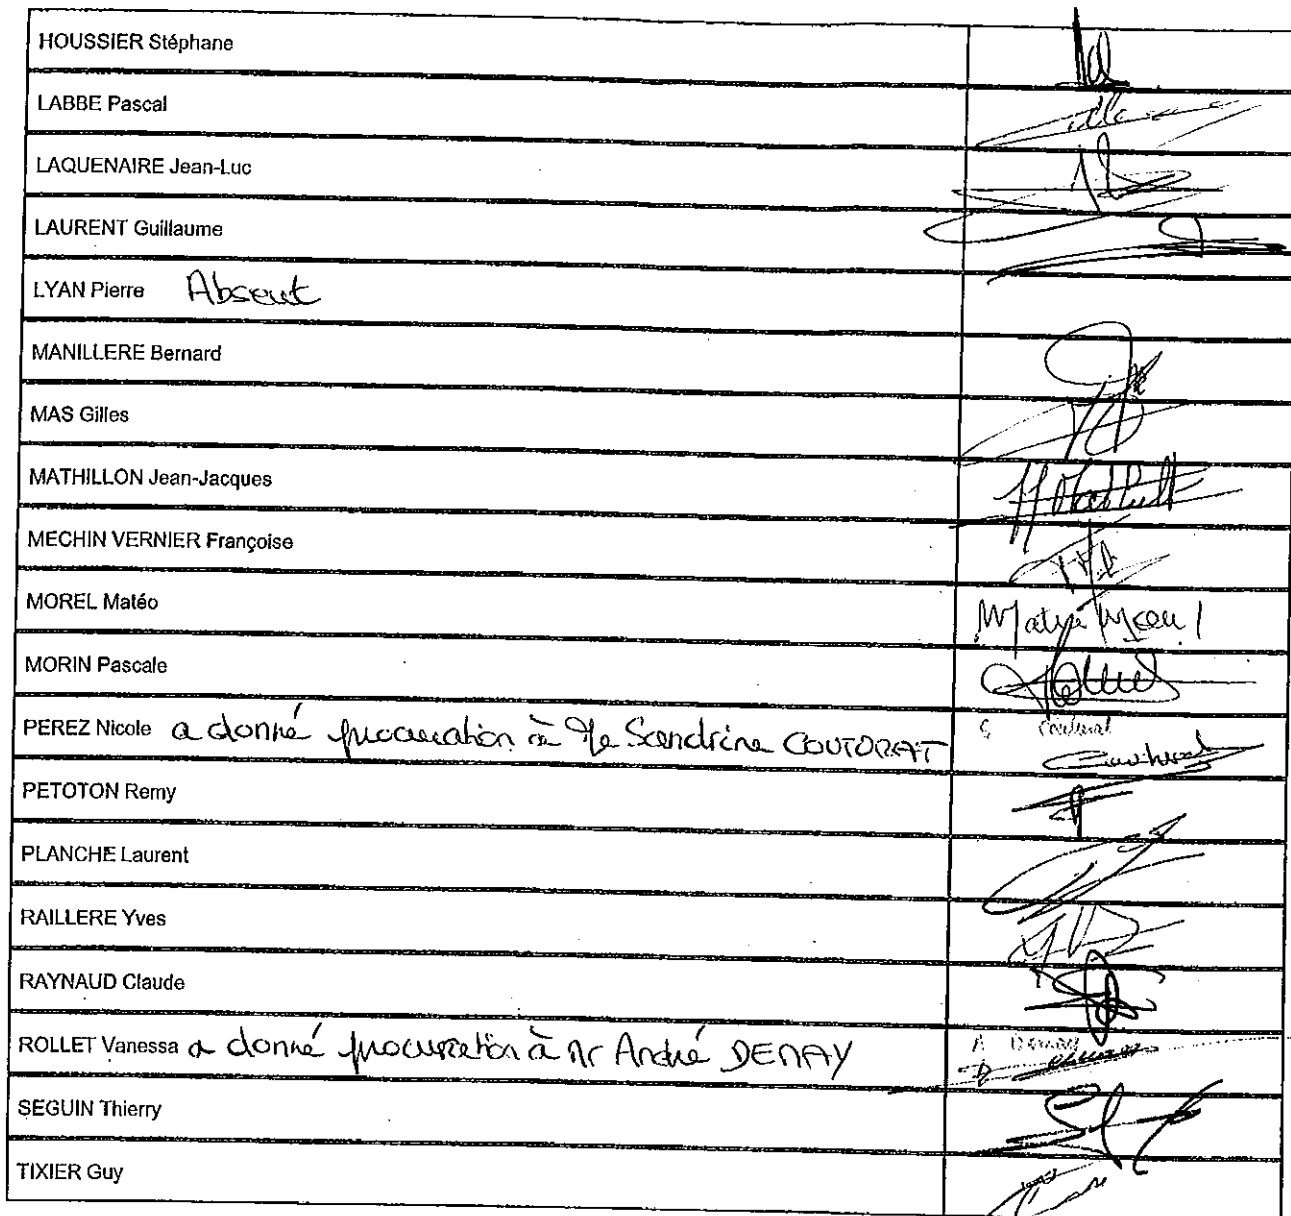 HOUSSIER Stéphane
LABBE Pascal
LAQUENAIRE Jean-Luc
LAURENT Guillaume
LYAN Pierre Absent
MANILLERE Bernard
MAS Gilles
MATHILLON Jean-Jacques
MECHIN VERNIER Françoise
MOREL Matéo
MORIN Pascale
PEREZ Nicole a donné procuration à Me Sandrine COUTORAT
PETOTON Remy
PLANCHE Laurent
RAILLERE Yves
RAYNAUD Claude
ROLLET Vanessa a donné procuration à Mr André DEMAY
A DEMAY
SEGUIN Thierry
TIXIER Guy